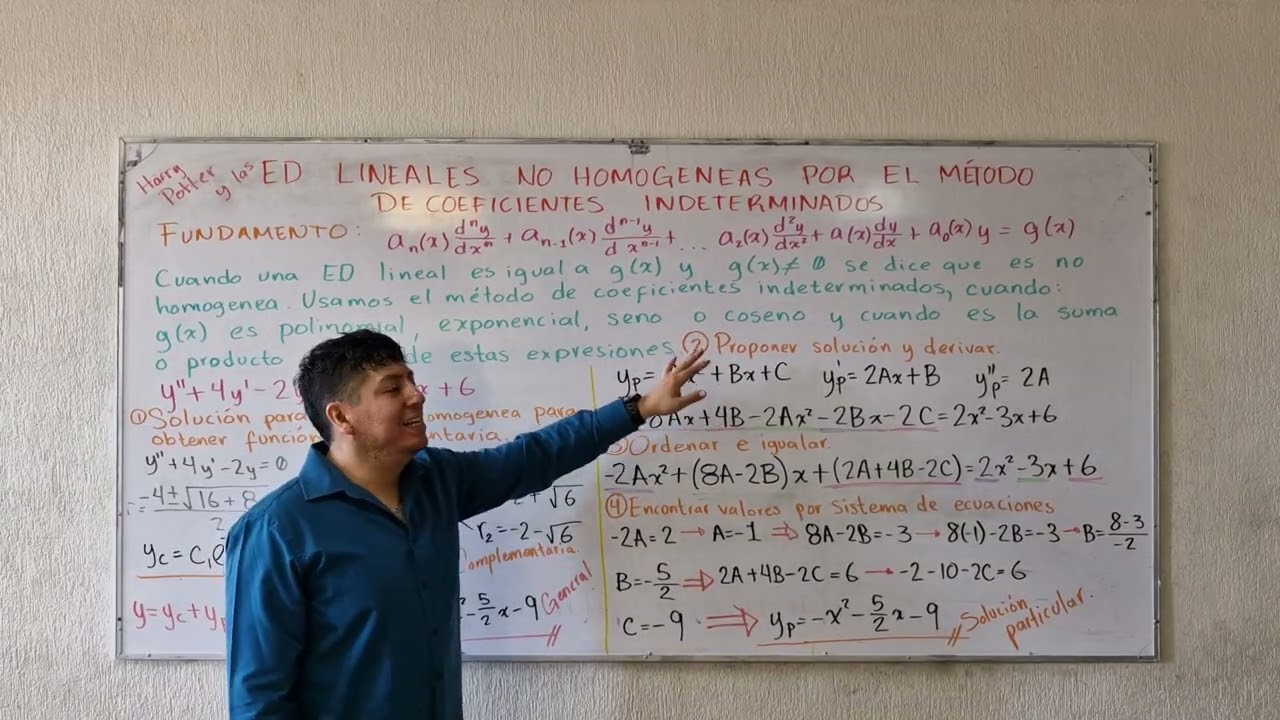 Harry
Potter
y las
ED LINEALES NO HOMOGENEAS POR EL MÉTODO
DE COEFICIENTES INDETERMINADOS
FUNDAMENTO: aₙ(x) dⁿy/dxⁿ + aₙ₋₁(x) dⁿ⁻¹y/d xⁿ⁻¹ + ... a₂(x) d²y/dx² + a(x) dy/dx + a₀(x) y = g(x)
Cuando una ED lineal es igual a g(x) y g(x) ≠ 0 se dice que es no
homogenea. Usamos el método de coeficientes indeterminados, cuando:
g(x) es polinomial, exponencial, seno o coseno y cuando es la suma
o producto de estas expresiones
y''+4y'-2 x+6
① Solución para homogenea para
obtener función mentaria.
y''+4y'-2y=0
-4±√16+8
2
+ √6
r₂=-2-√6
y_c = C₁
omplementaria.
y=y_c+y
-5/2 x-9 General
② Proponer solución y derivar.
y_p= x² +Bx+C y'_p=2Ax+B y''_p=2A
8Ax+4B-2Ax²-2Bx-2C=2x²-3x+6
Ordenar e igualar.
-2Ax²+(8A-2B)x+(2A+4B-2C)=2x²-3x+6
④ Encontrar valores por sistema de ecuaciones
-2A=2 → A=-1 ⇒ 8A-2B=-3 → 8(-1)-2B=-3 → B=8-3/-2
B=-5/2 ⇒ 2A+4B-2C=6 → -2-10-2C=6
C=-9 ⇒ y_p=-x²-5/2 x-9 // Solución
particular.